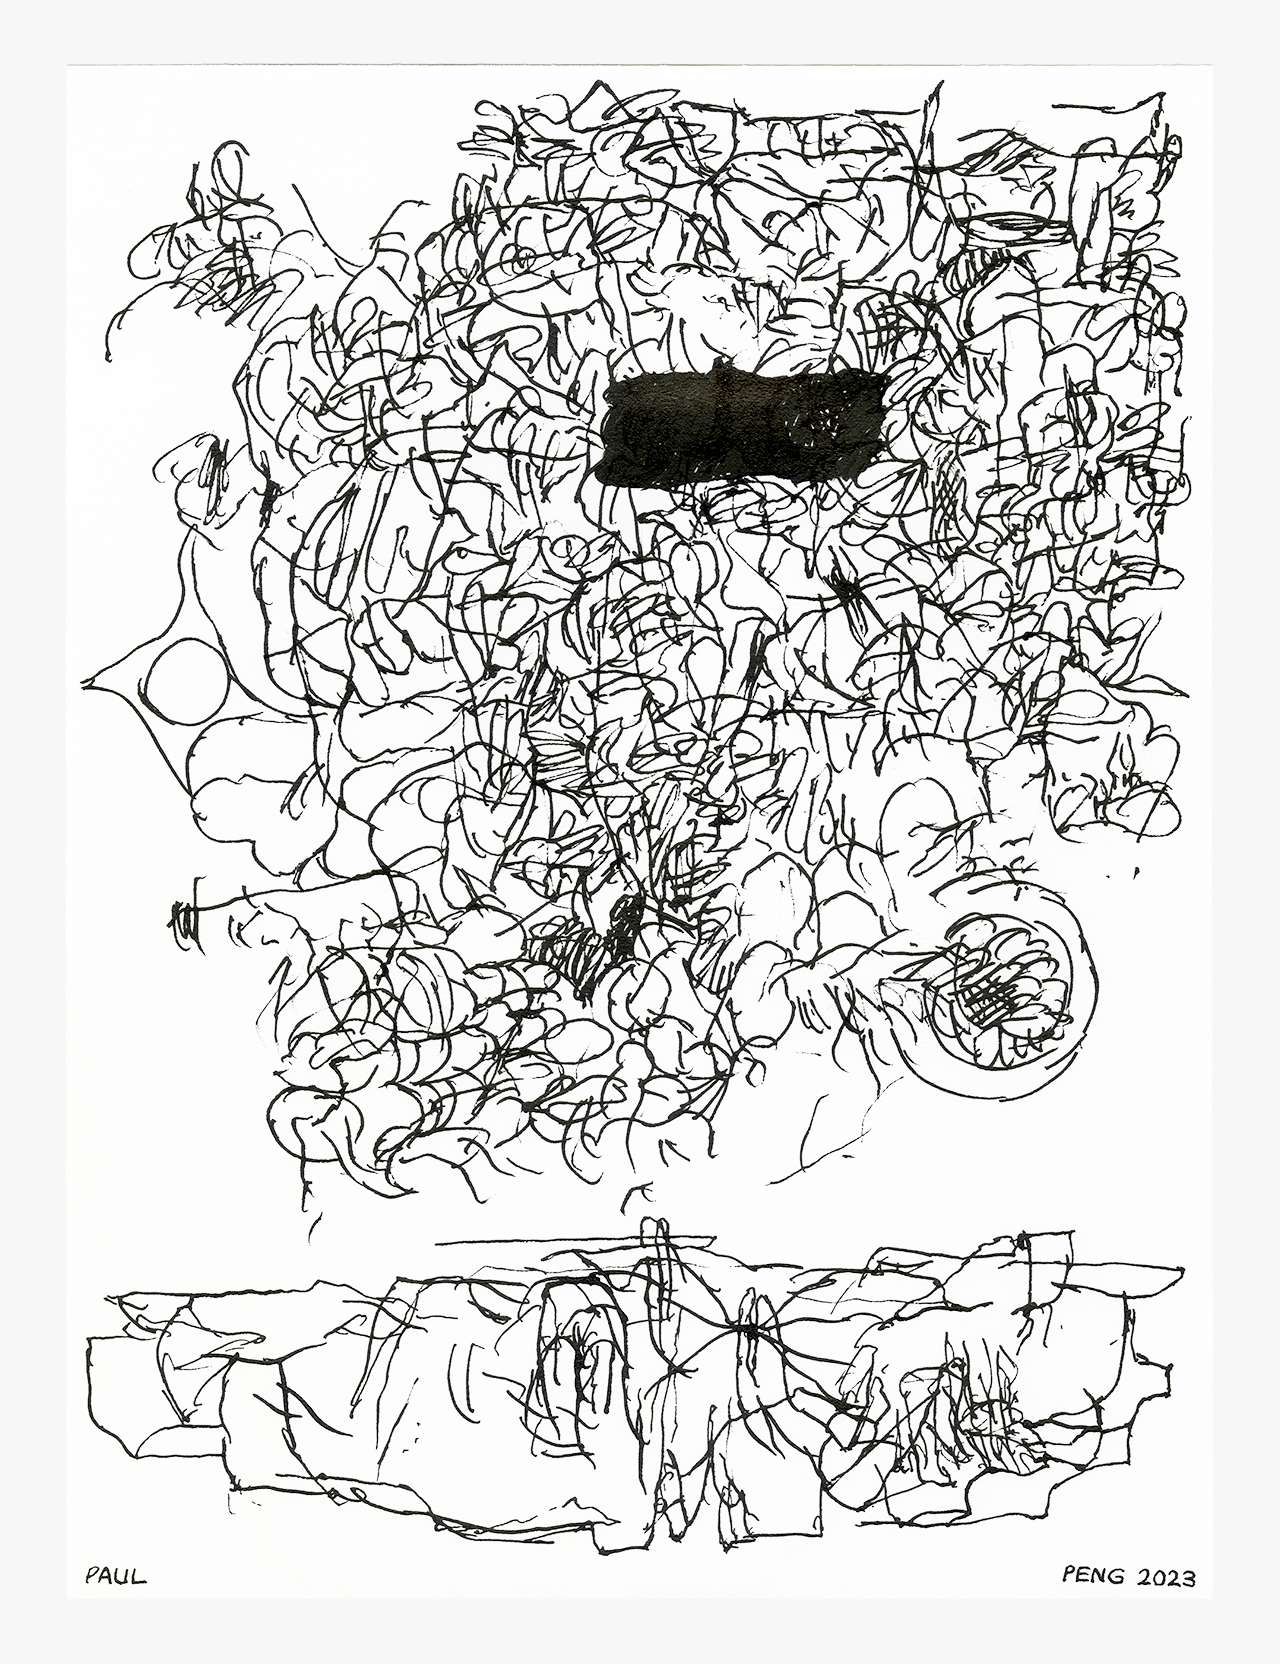 PAUL
PENG 2023